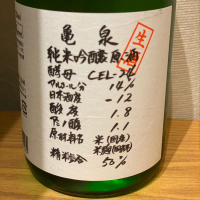 亀泉
生酒
純米吟醸原酒
酵母 CEL-24
アルコール分 14%
日本酒度 -12
酸度 1.8
アミノ酸 1.1
原材料名 米(国産)
米麹(国産米)
精米歩合 50%